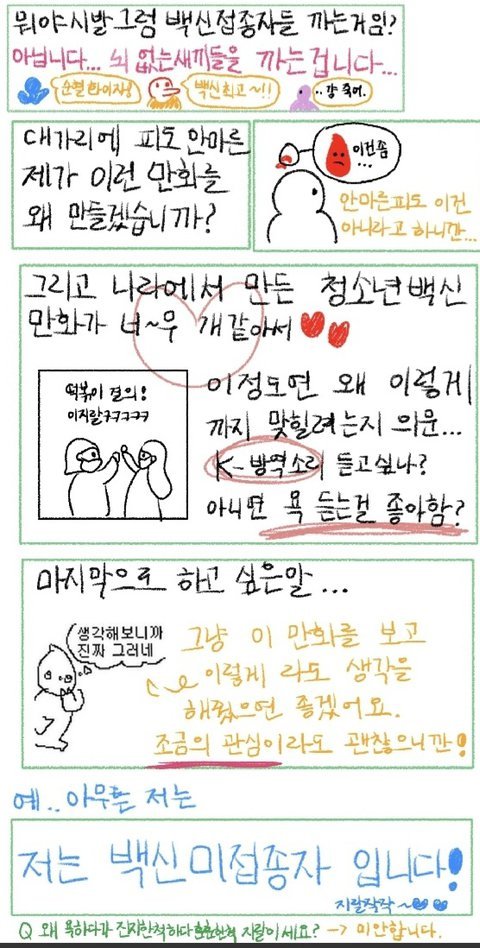 뭐야 시발 그럼 백신접종자들 까는거임?
아닙니다... 뇌 없는새끼들을 까는겁니다...
순혈 한이자!
백신최고~!!
..걍 죽어.
대가리에 피도 안마른
제가 이런 만화를
왜 만들겠습니까?
이건좀
...
안마른피도 이건
아니라고 하니깐...
그리고 나라에서 만든 청소년백신
만화가 너~무 개같아서
떡볶이 결의!
이지랄ㅋㅋㅋㅋㅋ
이정도면 왜 이렇게
까지 맞힐려는지 의문...
K-방역소리 듣고싶나?
아니면 욕 듣는걸 좋아함?
마지막으로 하고 싶은말...
생각해보니까
진짜 그러네
그냥 이 만화를 보고
이렇게 라도 생각을
해줬으면 좋겠어요.
조금의 관심이라도 괜찮으니깐!
예.. 아무튼 저는
저는 백신미접종자 입니다!
지랄작작~
Q 왜 욕하다가 진지한척하다 훈훈한척 지랄이세요? → 미안합니다.